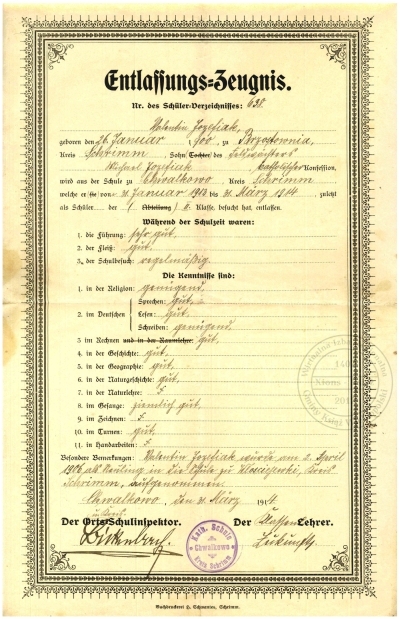 Entlassungs-Zeugnis.
Nr. des Schüler-Verzeichnisses: 638
Valentin Jozefiak,
geboren den 26. Januar 1900, zu Brzostownia,
Kreis Schrimm, Sohn Tochter des
Michael Jozefiak katholischer Konfession,
wird aus der Schule zu Chwalkowo, Kreis Schrimm
welche er sie von Januar bis 31. März 1914, zuletzt
als Schüler der (Abteilung) Klasse, besucht hat, entlassen.
Während der Schulzeit waren:
1. die Führung: sehr gut.
2. der Fleiß: gut.
3. der Schulbesuch: regelmäßig.
Die Kenntnisse sind:
1. in der Religion: genügend.
2. im Deutschen
Sprechen: gut,
Lesen: gut.
Schreiben: genügend.
3. im Rechnen und in der Raumlehre: gut,
4. in der Geschichte: gut,
5. in der Geographie: gut,
6. in der Naturgeschichte: gut,
7. in der Naturlehre:
8. im Gesange: ziemlich gut,
9. im Zeichnen:
10. im Turnen: gut,
11. in Handarbeiten:
Besondere Bemerkungen: Valentin Jozefiak wurde am 2. April
1906 als Neuling in die Schule zu Wlosciejewki, Kreis
Schrimm, aufgenommen.
Chwalkowo, den 31. März 1914
Der Orts-Schulinspektor. Der Klassen-Lehrer.
Kath. Schule
Chwalkowo
Kreis Schrimm
Buchdruckerei H. Schwantes, Schrimm.